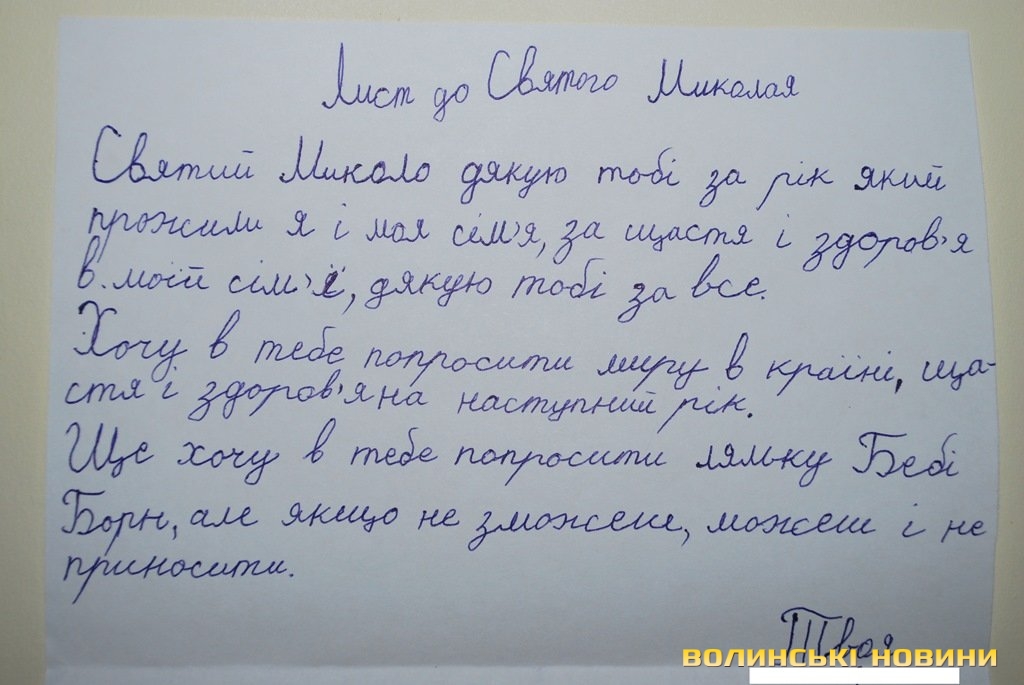 Лист до Святого Миколая
Святий Миколо дякую тобі за рік який
прожили я і моя сім'я, за щастя і здоров'я
в моїй сім'ї, дякую тобі за все.
Хочу в тебе попросити миру в країні, ща-
стя і здоров'я на наступний рік.
Ще хочу в тебе попросити ляльку Бебі
Борн, але якщо не зможеш, можеш і не
приносити.
Твоя
ВОЛИНСЬКІ НОВИНИ